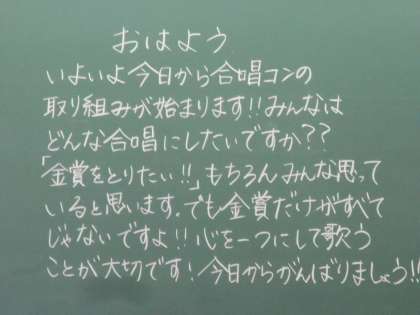 おはよう
いよいよ今日から合唱コンの
取り組みが始まります!!みんなは
どんな合唱にしたいですか??
「金賞をとりたい!!」もちろんみんな思って
いると思います。でも金賞だけがすべて
じゃないですよ!!心を一つにして歌う
ことが大切です!今日からがんばりましょう!!